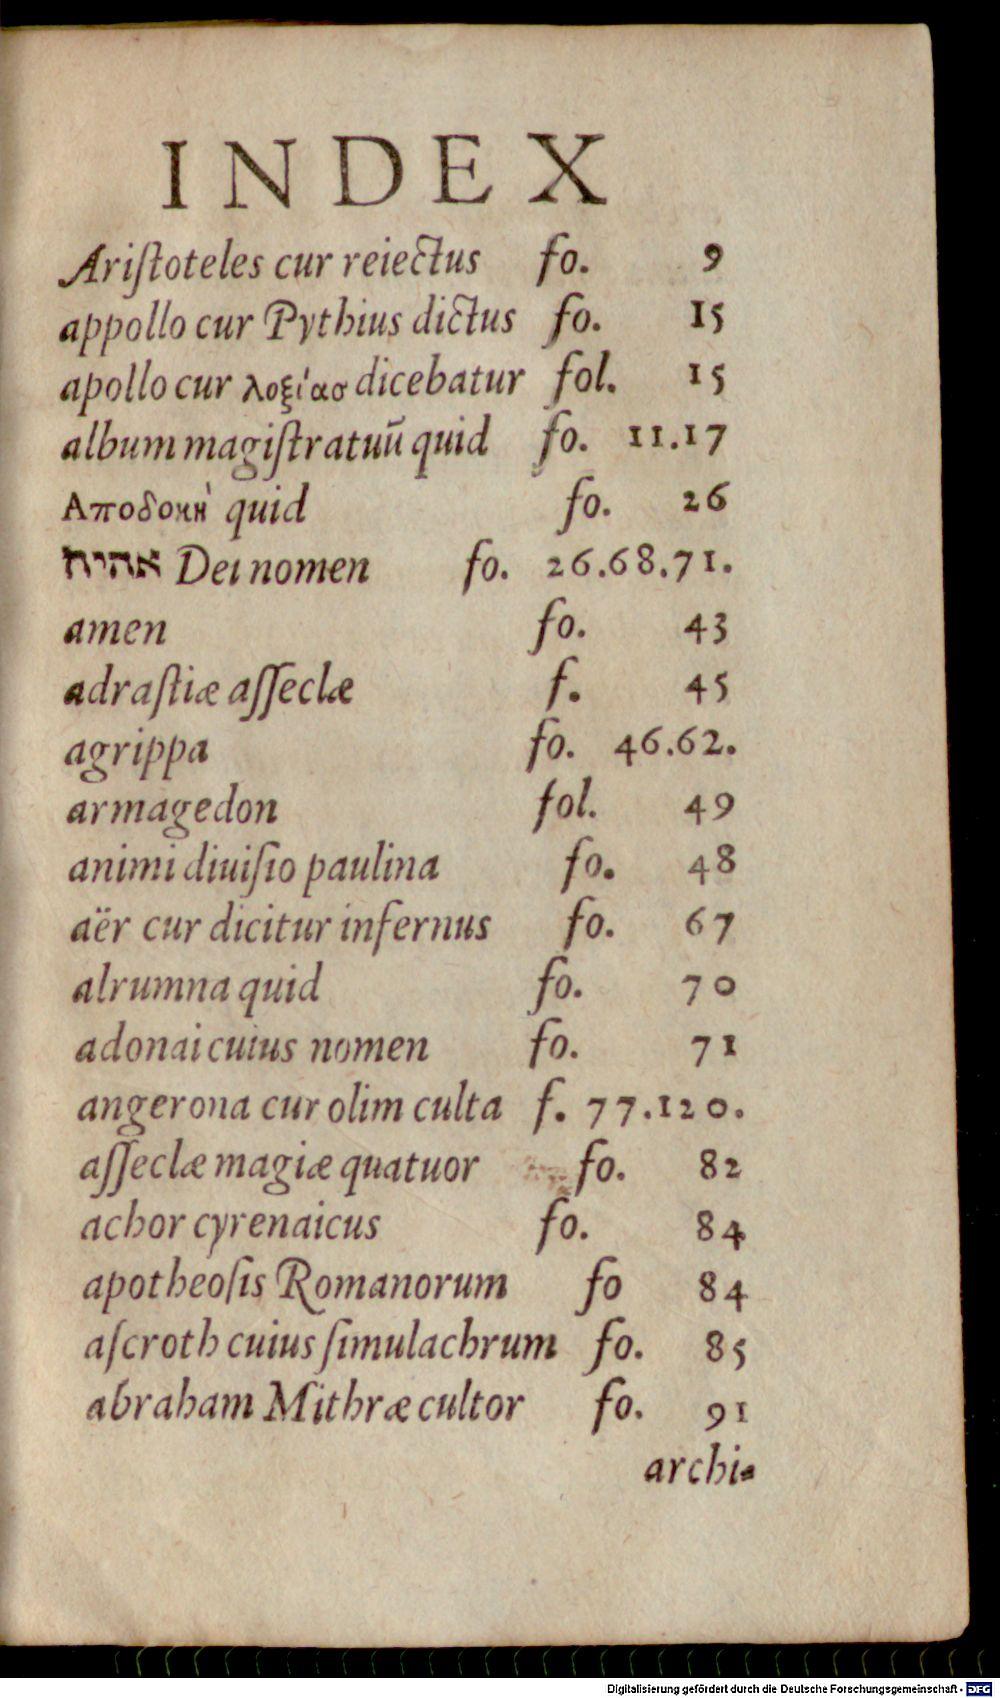 INDEX
Ariſtoteles cur reiectus fo. 9
appollo cur Pythius dictus fo. 15
apollo cur λοξίασ dicebatur fol. 15
album magiſtratuū quid fo. 11.17
Αποδοκὴ quid fo. 26
אהיה Dei nomen fo. 26.68.71.
amen fo. 43
adraſtiæ aſſeclæ f. 45
agrippa fo. 46.62.
armagedon fol. 49
animi diuiſio paulina fo. 48
aër cur dicitur infernus fo. 67
alrumna quid fo. 70
adonai cuius nomen fo. 71
angerona cur olim culta f. 77.120.
aſſeclæ magiæ quatuor fo. 82
achor cyrenaicus fo. 84
apotheoſis Romanorum fo 84
aſcroth cuius ſimulachrum fo. 85
abraham Mithræ cultor fo. 91
archi-
Digitalisierung gefördert durch die Deutsche Forschungsgemeinschaft - DFG